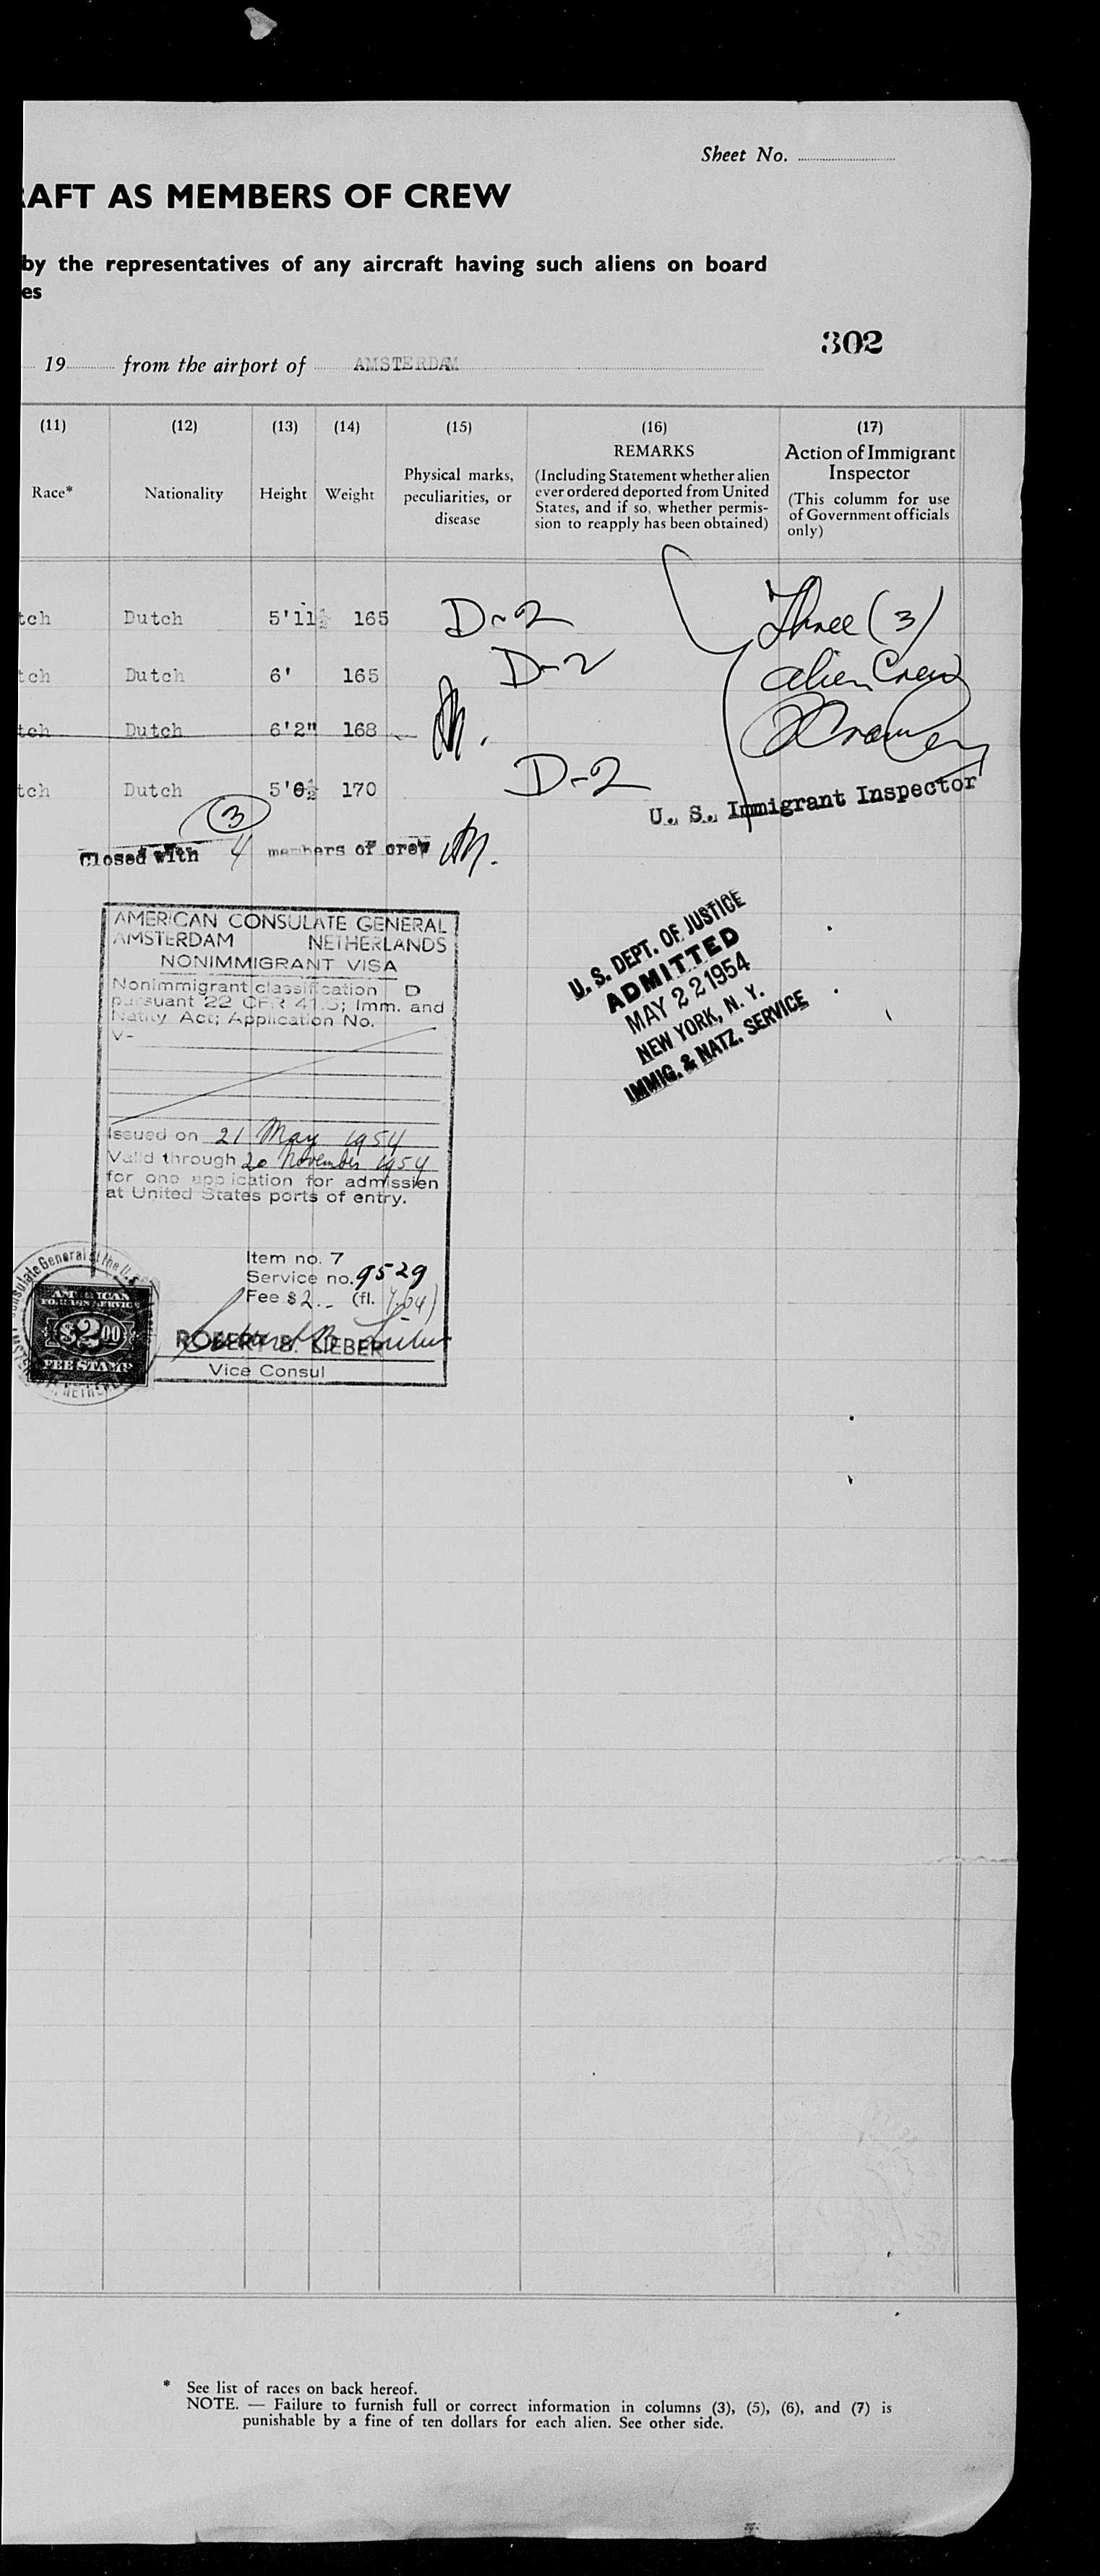 Sheet No.
RAFT AS MEMBERS OF CREW
by the representatives of any aircraft having such aliens on board
es
302
19 from the airport of AMSTERDAM
(11) (12) (13) (14) (15) (16) (17)
Race* Nationality Height Weight Physical marks, peculiarities, or disease
REMARKS
(Including Statement whether alien
ever ordered deported from United
States, and if so, whether permis-
sion to reapply has been obtained)
Action of Immigrant
Inspector
(This columm for use
of Government officials
only)
tch Dutch 5'11½ 165 D-2 Three (3)
tch Dutch 6' 165 D-2 alien Crew
tch Dutch 6'2" 168
tch Dutch 5' ½ 170 D-2
U. S. Immigrant Inspector
(3)
Closed with 4 members of crew
AMERICAN CONSULATE GENERAL
AMSTERDAM NETHERLANDS
NONIMMIGRANT VISA
Nonimmigrant classification D
pursuant 22 CFR 41.5; Imm. and
Natlty Act; Application No.
V-
Issued on 21 May 1954
Valid through 20 November 1954
for one application for admission
at United States ports of entry.
Item no. 7
Service no. 9529
Fee $2.- (fl. 7.04)
ROBERT B. LIEBER
Vice Consul
AMERICAN
FOREIGN SERVICE
$2.00
FEE STAMP
Consulate General of the U.S.
U. S. DEPT. OF JUSTICE
ADMITTED
MAY 22 1954
NEW YORK, N. Y.
IMMIG. & NATZ. SERVICE
* See list of races on back hereof.
NOTE. — Failure to furnish full or correct information in columns (3), (5), (6), and (7) is
punishable by a fine of ten dollars for each alien. See other side.